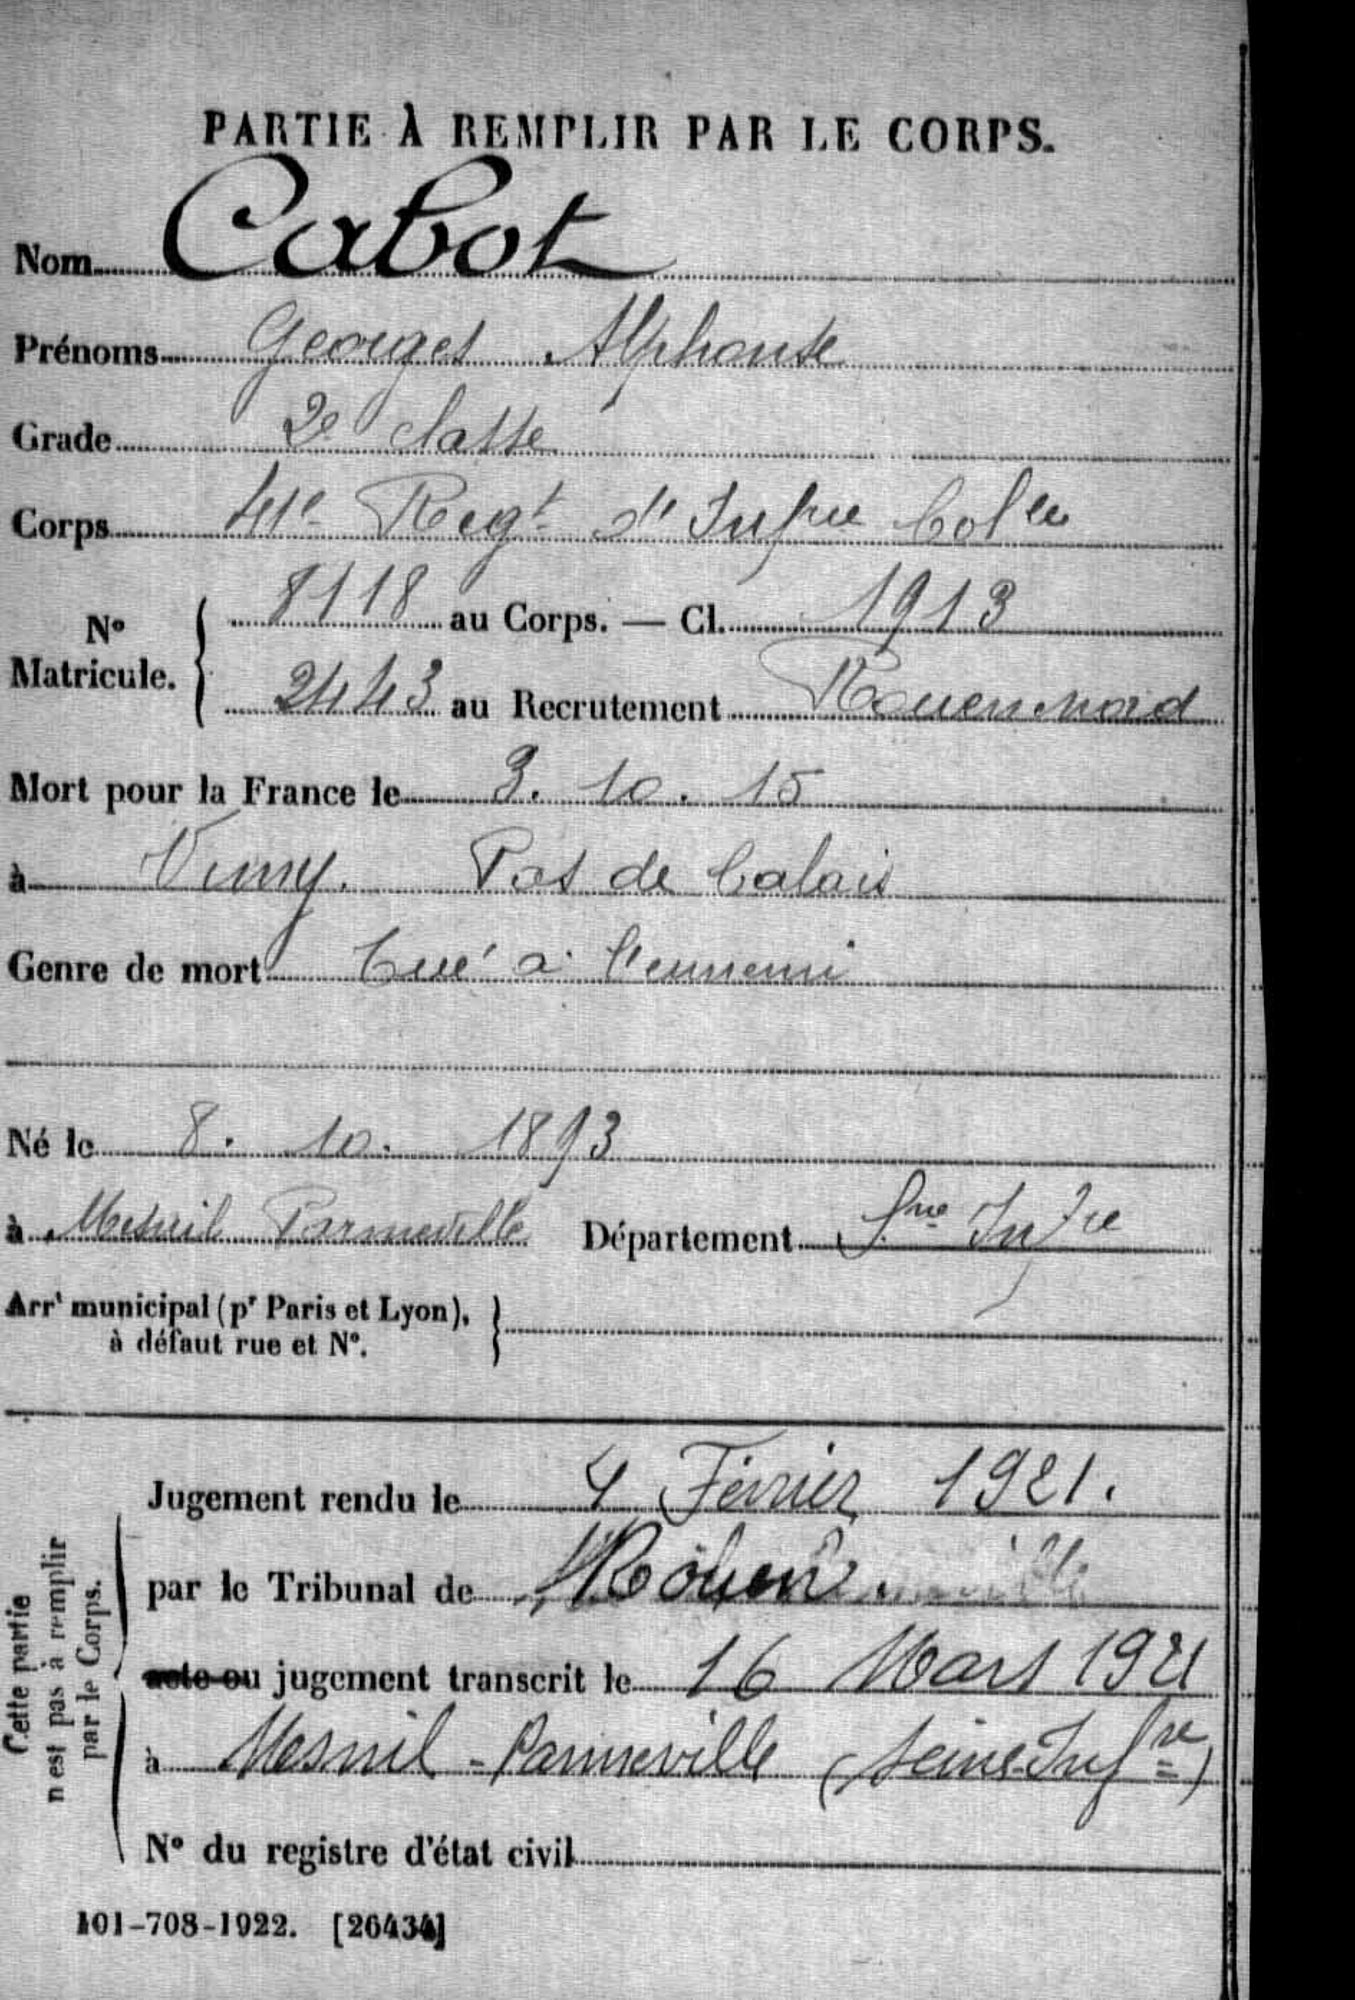 PARTIE À REMPLIR PAR LE CORPS.
Nom Cabot
Prénoms Georges Alphonse
Grade 2e classe
Corps 41e Regt d'Infrie Colle
N° Matricule. 8118 au Corps. — Cl. 1913
2443 au Recrutement Rouen nord
Mort pour la France le 3. 10. 15
à Vimy. Pas de Calais
Genre de mort Tué à l'ennemi
Né le 8. 10. 1893
à Mesnil Panneville Département Sne Infre
Arrt municipal (pr Paris et Lyon),
à défaut rue et N°.
Cette partie
n'est pas à remplir
par le Corps.
Jugement rendu le 4 Février 1921.
par le Tribunal de Rouen.
acte ou jugement transcrit le 16 Mars 1921
à Mesnil-Panneville (Seine-Infre)
N° du registre d'état civil
101-708-1922. [26434]